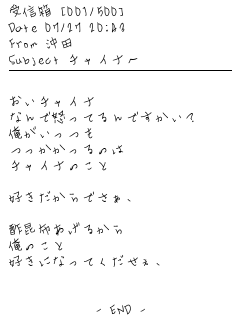 受信箱 [001/500]
Date 07/27 20:43
From 沖田
Subject チャイナー
おいチャイナ
なんで怒ってるんですかいて
俺がいっつも
つっかかってるのは
チャイナのこと
好きだからでさぁ、
酢昆布あげるから
俺のこと
好きになってくだせぇ、
- END -